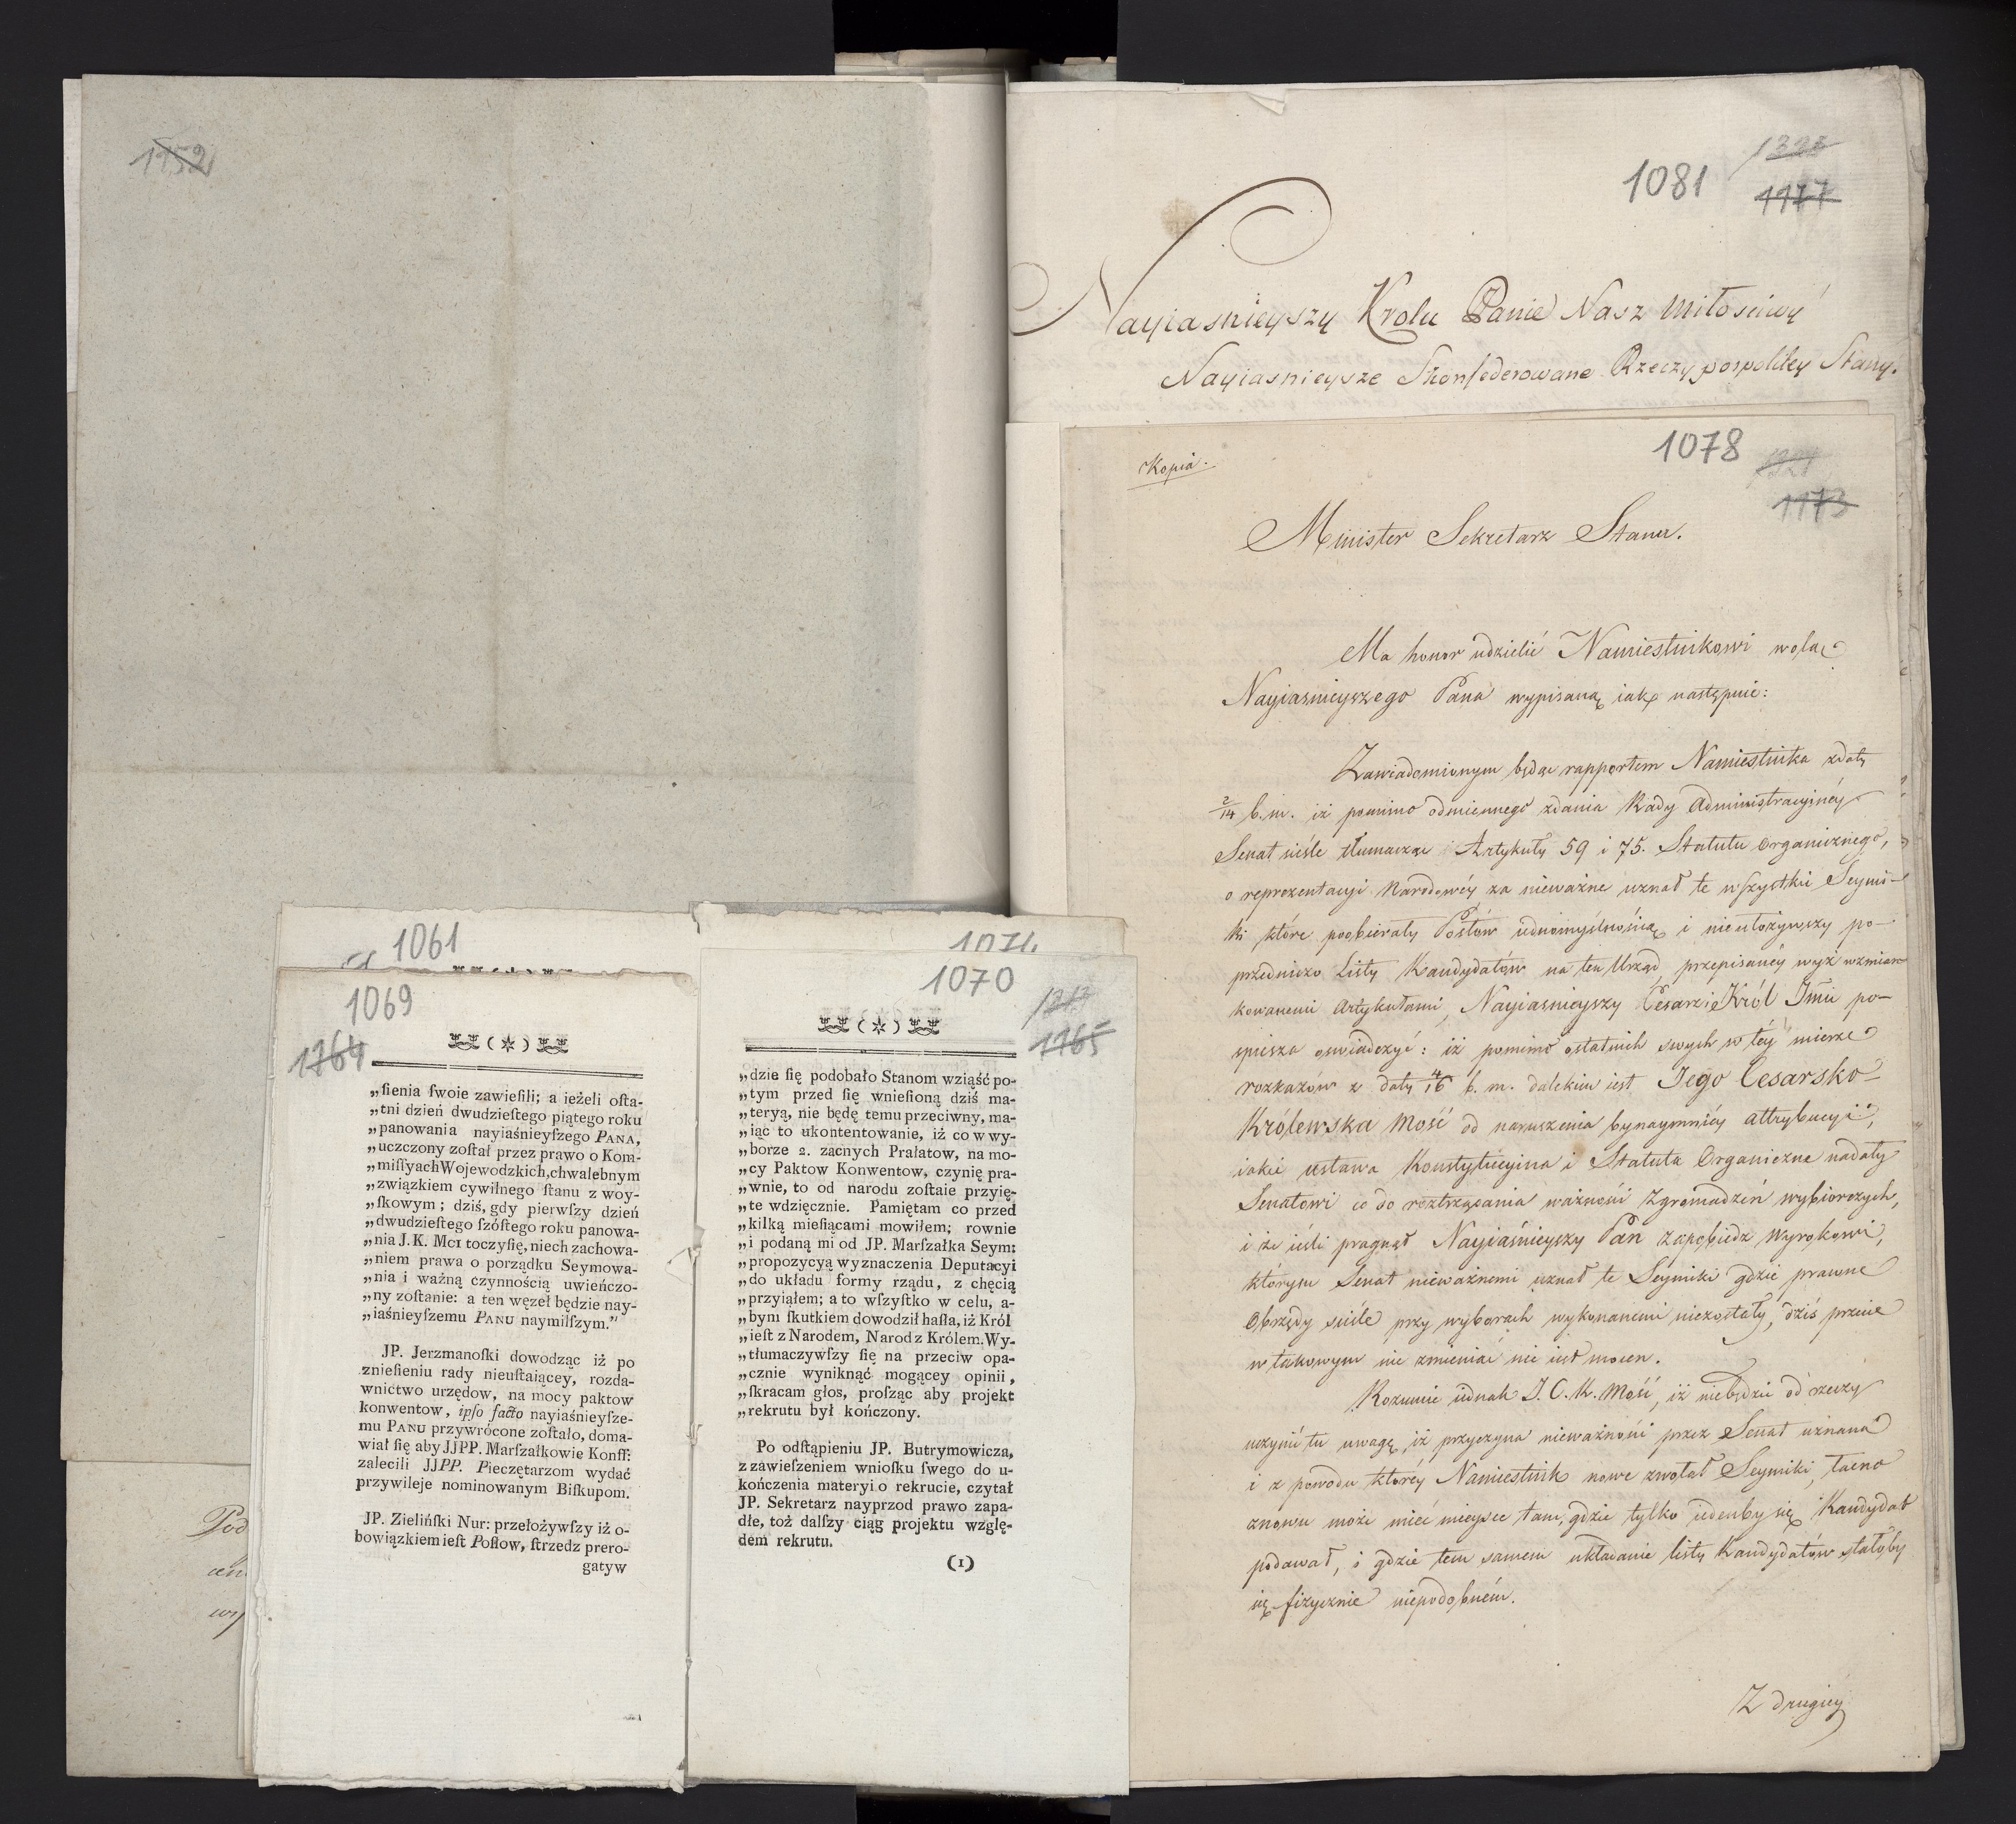 1152
1081
1323
1177
Nayiasnieyszy Krolu Panie Nasz Miłosciwy
Nayiasnieysze Skonfederowane Rzeczypospolitey Stany.
1078
1321
1173
Kopia.
Minister Sekretarz Stanu.
Ma honor udzielić Namiestnikowi wolą
Nayiasnieyszego Pana wypisaną iak następuie:
Zawiadomionym będąc rapportem Namiestnika z daty
2/14 b. m. iż pomimo odmiennego zdania Rady Administracyinéy
Senat ściśle tłumacząc Artykuły 59 i 75. Statutu Organicznego,
o reprezentacyi Narodowéy za nieważne uznał te wszystkie Seymi-
ki które poobierały Posłów iednomyślnością i nieułożywszy po-
przedniczo Listy Kandydatów na ten Urząd, przepisanéy wyż wzmian-
kowanemi Artykułami, Nayiasnieyszy Cesarz i Król Jmci po-
spiesza oswiadczyć: iż pomimo ostatnich swych w téy mierze
rozkazów z daty 4/16 b. m. dalekim iest Jego Cesarsko-
Królewska Mość od naruszenia bynaymniéy attrybucyi,
iakie Ustawa Konstytucyina i Statuta Organiczne nadały
Senatowi co do roztrząsania ważności Zgromadzeń wybiorczych,
i że ieśli pragnął Nayiaśnieyszy Pan zapobiedz Wyrokowi,
którym Senat nieważnemi uznał te Seymiki gdzie prawne
Obrzędy ściśle przy wyborach wykonanemi niezostały, dziś przecie
w takowym nic zmieniać nie iest mocen.
Rozumie iednak J. C. K. Mość, iż niebędzie od rzeczy
uczynić tu uwagę, iż przyczyna nieważności przez Senat uznana
i z powodu któréy Namiestnik nowe zwołał Seymiki, łacno
znowu może mieć mieysce tam, gdzie tylko iedenby się Kandydat
podawał, i gdzie tem samem układanie listy Kandydatów stałoby
się fizycznie niepodobném.
Z drugiéy
1061
1069
1764
(*)
„ſienia ſwoie zawieſili; a ieżeli oſta-
„tni dzień dwudzieſtego piątego roku
„panowania nayiaśnieyſzego PANA,
„uczczony zoſtał przez prawo o Kom-
„miſſyach Wojewodzkich, chwalebnym
„związkiem cywilnego ſtanu z woy-
„ſkowym; dziś, gdy pierwſzy dzień
„dwudzieſtego ſzóſtego roku panowa-
„nia J. K. Mci toczy ſię, niech zachowa-
„niem prawa o porządku Seymowa-
„nia i ważną czynnością uwieńczo-
„ny zoſtanie: a ten węzeł będzie nay-
„iaśnieyſzemu PANU naymilſzym.”
JP. Jerzmanoſki dowodząc iż po
znieſieniu rady nieuſtaiącey, rozda-
wnictwo urzędow, na mocy paktow
konwentow, ipſo facto nayiaśnieyſze-
mu PANU przywrócone zoſtało, doma-
wiał ſię aby JJPP. Marſzałkowie Konff:
zalecili JJPP. Pieczętarzom wydać
przywileje nominowanym Biſkupom.
JP. Zielińſki Nur: przełożywſzy iż o-
bowiązkiem ieſt Poſłow, ſtrzedz prero-
gatyw
1070
1765
(*)
„dzie ſię podobało Stanom wziąść po-
„tym przed ſię wnieſioną dziś ma-
„teryą, nie będę temu przeciwny, ma-
„iąc to ukontentowanie, iż co w wy-
„borze 2. zacnych Prałatow, na mo-
„cy Paktow Konwentow, czynię pra-
„wnie, to od narodu zoſtaie przyię-
„te wdzięcznie. Pamiętam co przed
„kilką mieſiącami mowiłem; rownie
„i podaną mi od JP. Marſzałka Seym:
„propozycyą wyznaczenia Deputacyi
„do układu formy rządu, z chęcią
„przyiąłem; a to wſzyſtko w celu, a-
„bym ſkutkiem dowodził haſła, iż Król
„ieſt z Narodem, Narod z Królem. Wy-
„tłumaczywſzy ſię na przeciw opa-
„cznie wyniknąć mogącey opinii,
„ſkracam głos, proſząc aby projekt
„rekrutu był kończony.
Po odſtąpieniu JP. Butrymowicza,
z zawieſzeniem wnioſku ſwego do u-
kończenia materyi o rekrucie, czytał
JP. Sekretarz nayprzod prawo zapa-
dłe, toż dalſzy ciąg projektu wzglę-
dem rekrutu.
(1)